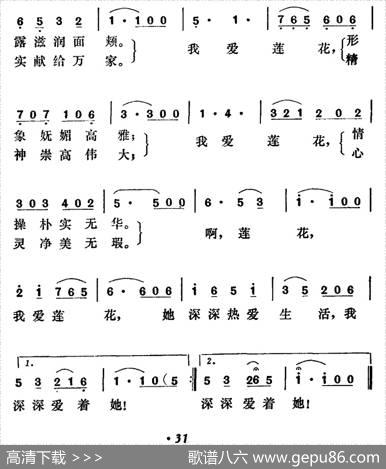 6 5 3 2 | 1 · 1 0 0 | 5 · 1 · | 7 6 5 6 0 6 |
露滋润面 颊。 我 爱 莲 花， 形
实献给万 家。 精
7 0 7 1 0 6 | 3 · 3 0 0 | 1 · 4 · | 3 2 1 2 0 2 |
象妩媚高 雅； 我 爱 莲 花， 情
神崇高伟 大； 心
3 0 3 4 0 2 | 5 · 5 0 0 | 6 · 5 3 | 1 · 1 0 0 |
操朴实无 华。 啊，莲 花，
灵净美无 瑕。
2 1 7 6 5 | 6 · 6 0 6 | 1 6 5 1 | 3 5 2 0 6 |
我爱莲 花， 她 深深热爱 生 活，我
1. 2.
5 3 2 1 6 | 1 · 1 0 ( 5 :| 5 3 2 6 5 | 1 · 1 0 0 |
深深爱着 她！ 深深爱着 她！
· 31
高清下载 >>> 歌谱八六 www.gepu86.com